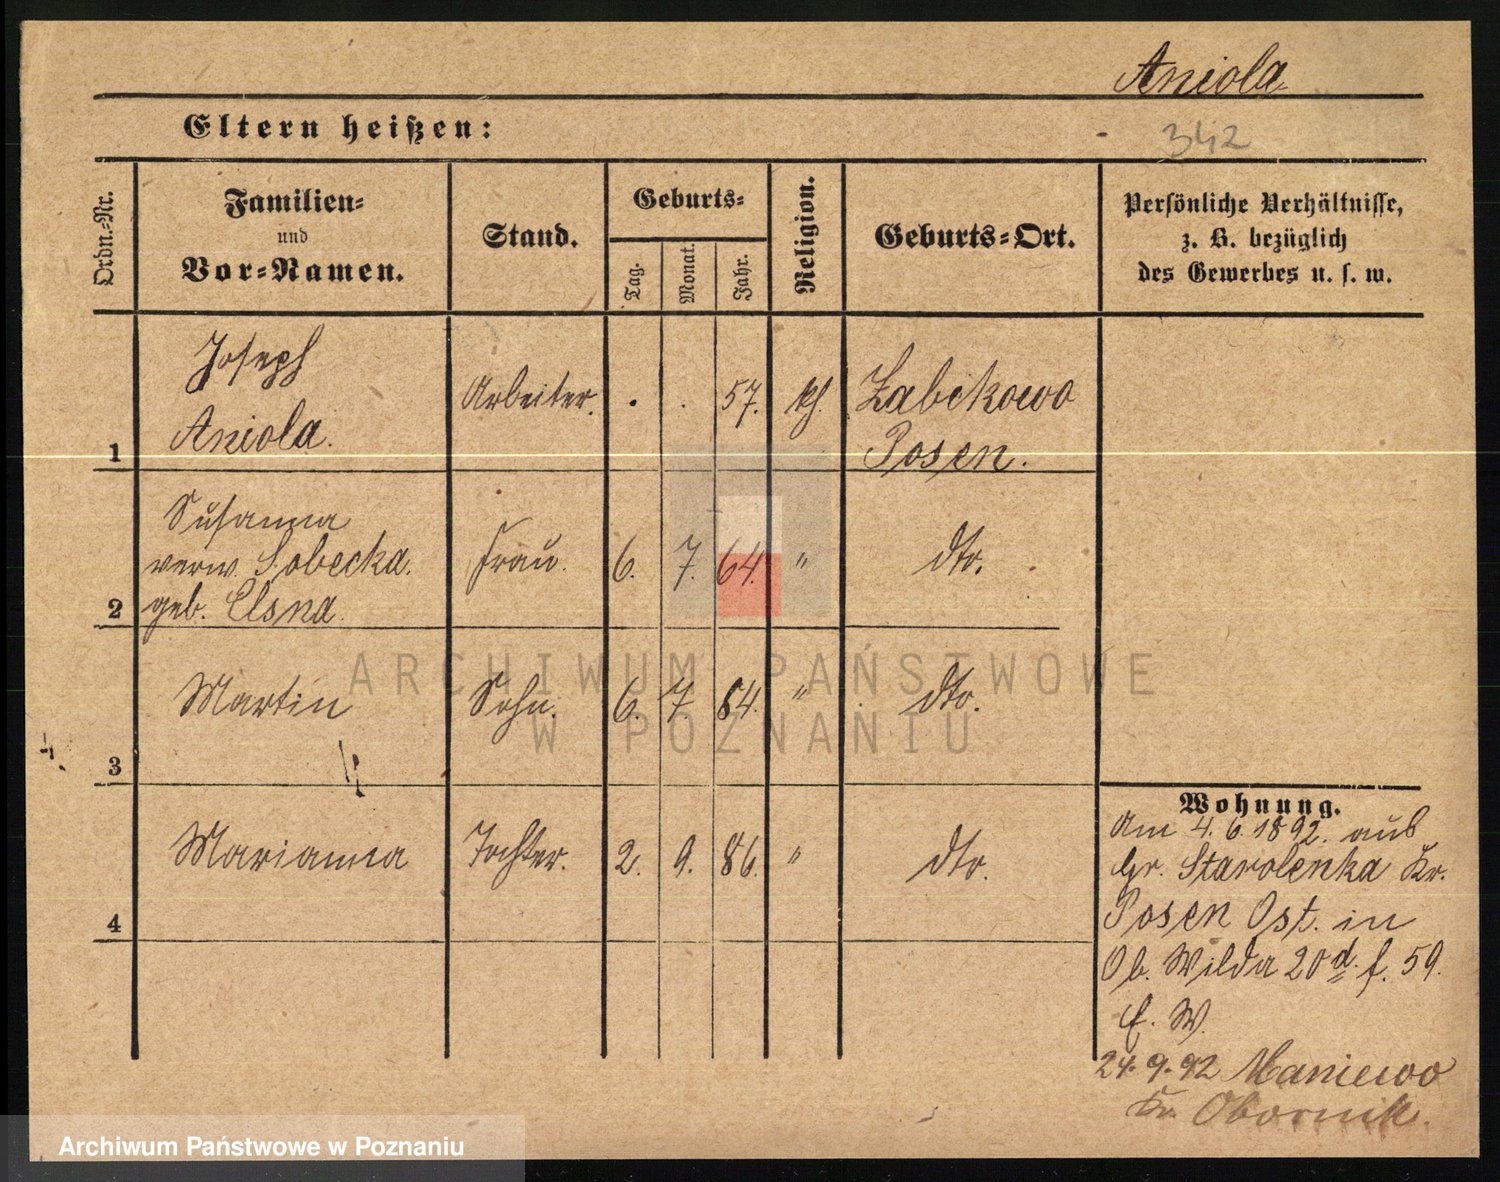 Aniola
Eltern heißen:
342
Ordn.-Nr.
Familien-
und
Vor-Namen.
Stand.
Geburts-
Tag.
Monat.
Jahr.
Religion.
Geburts-Ort.
Persönliche Verhältnisse,
z. B. bezüglich
des Gewerbes u. s. w.
1
Joseph
Aniola.
Arbeiter.
57.
kth.
Zabikowo
Posen.
2
Susanna
verw. Sobecka.
geb. Elsna.
Frau.
6. 7. 64. "
dto.
3
Martin
Sohn.
6. 7. 84. "
dto.
4
Marianna
Tochter.
2. 9. 86. "
dto.
Wohnung.
Am 4. 6. 1892. aus
Gr. Starolenka Kr.
Posen Ost. in
Ob. Wilda 20 d. f. 59.
E. W.
24. 9. 92 Maniewo
Kr. Obornik.
ARCHIWUM PAŃSTWOWE
W POZNANIU
Archiwum Państwowe w Poznaniu